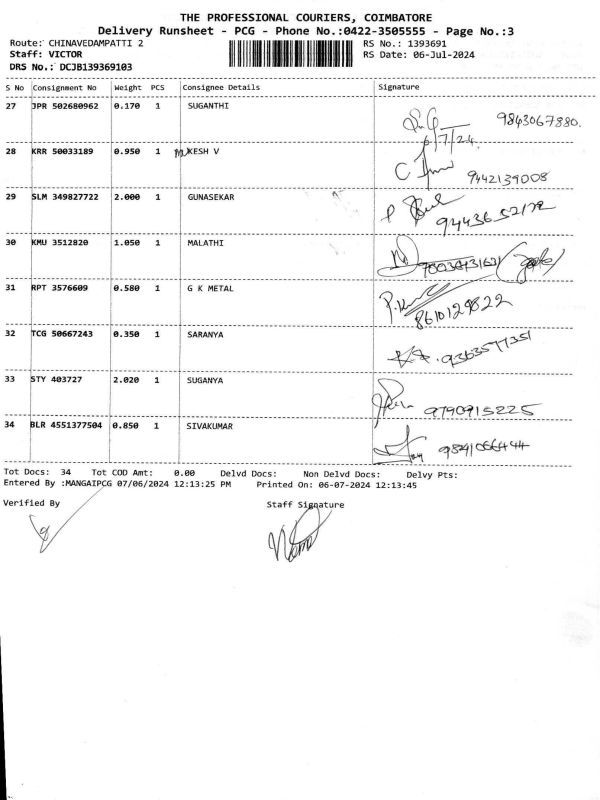 THE PROFESSIONAL COURIERS, COIMBATORE
Delivery Runsheet - PCG - Phone No.:0422-3505555 - Page No.:3
Route: CHINAVEDAMPATTI 2 RS No.: 1393691
Staff: VICTOR RS Date: 06-Jul-2024
DRS No.: DCJB139369103
S No Consignment No Weight PCS Consignee Details Signature
27 JPR 502680962 0.170 1 SUGANTHI 9843067880.
6/7/24
28 KRR 50033189 0.950 1 MUKESH V 9442139008
29 SLM 349827722 2.000 1 GUNASEKAR
30 KMU 3512820 1.050 1 MALATHI
31 RPT 3576609 0.580 1 G K METAL 8610129822
32 TCG 50667243 0.350 1 SARANYA 9363577351
33 STY 403727 2.020 1 SUGANYA 9790915225
34 BLR 4551377504 0.850 1 SIVAKUMAR
Tot Docs: 34 Tot COD Amt: 0.00 Delvd Docs: Non Delvd Docs: Delvy Pts:
Entered By :MANGAIPCG 07/06/2024 12:13:25 PM Printed On: 06-07-2024 12:13:45
Verified By Staff Signature